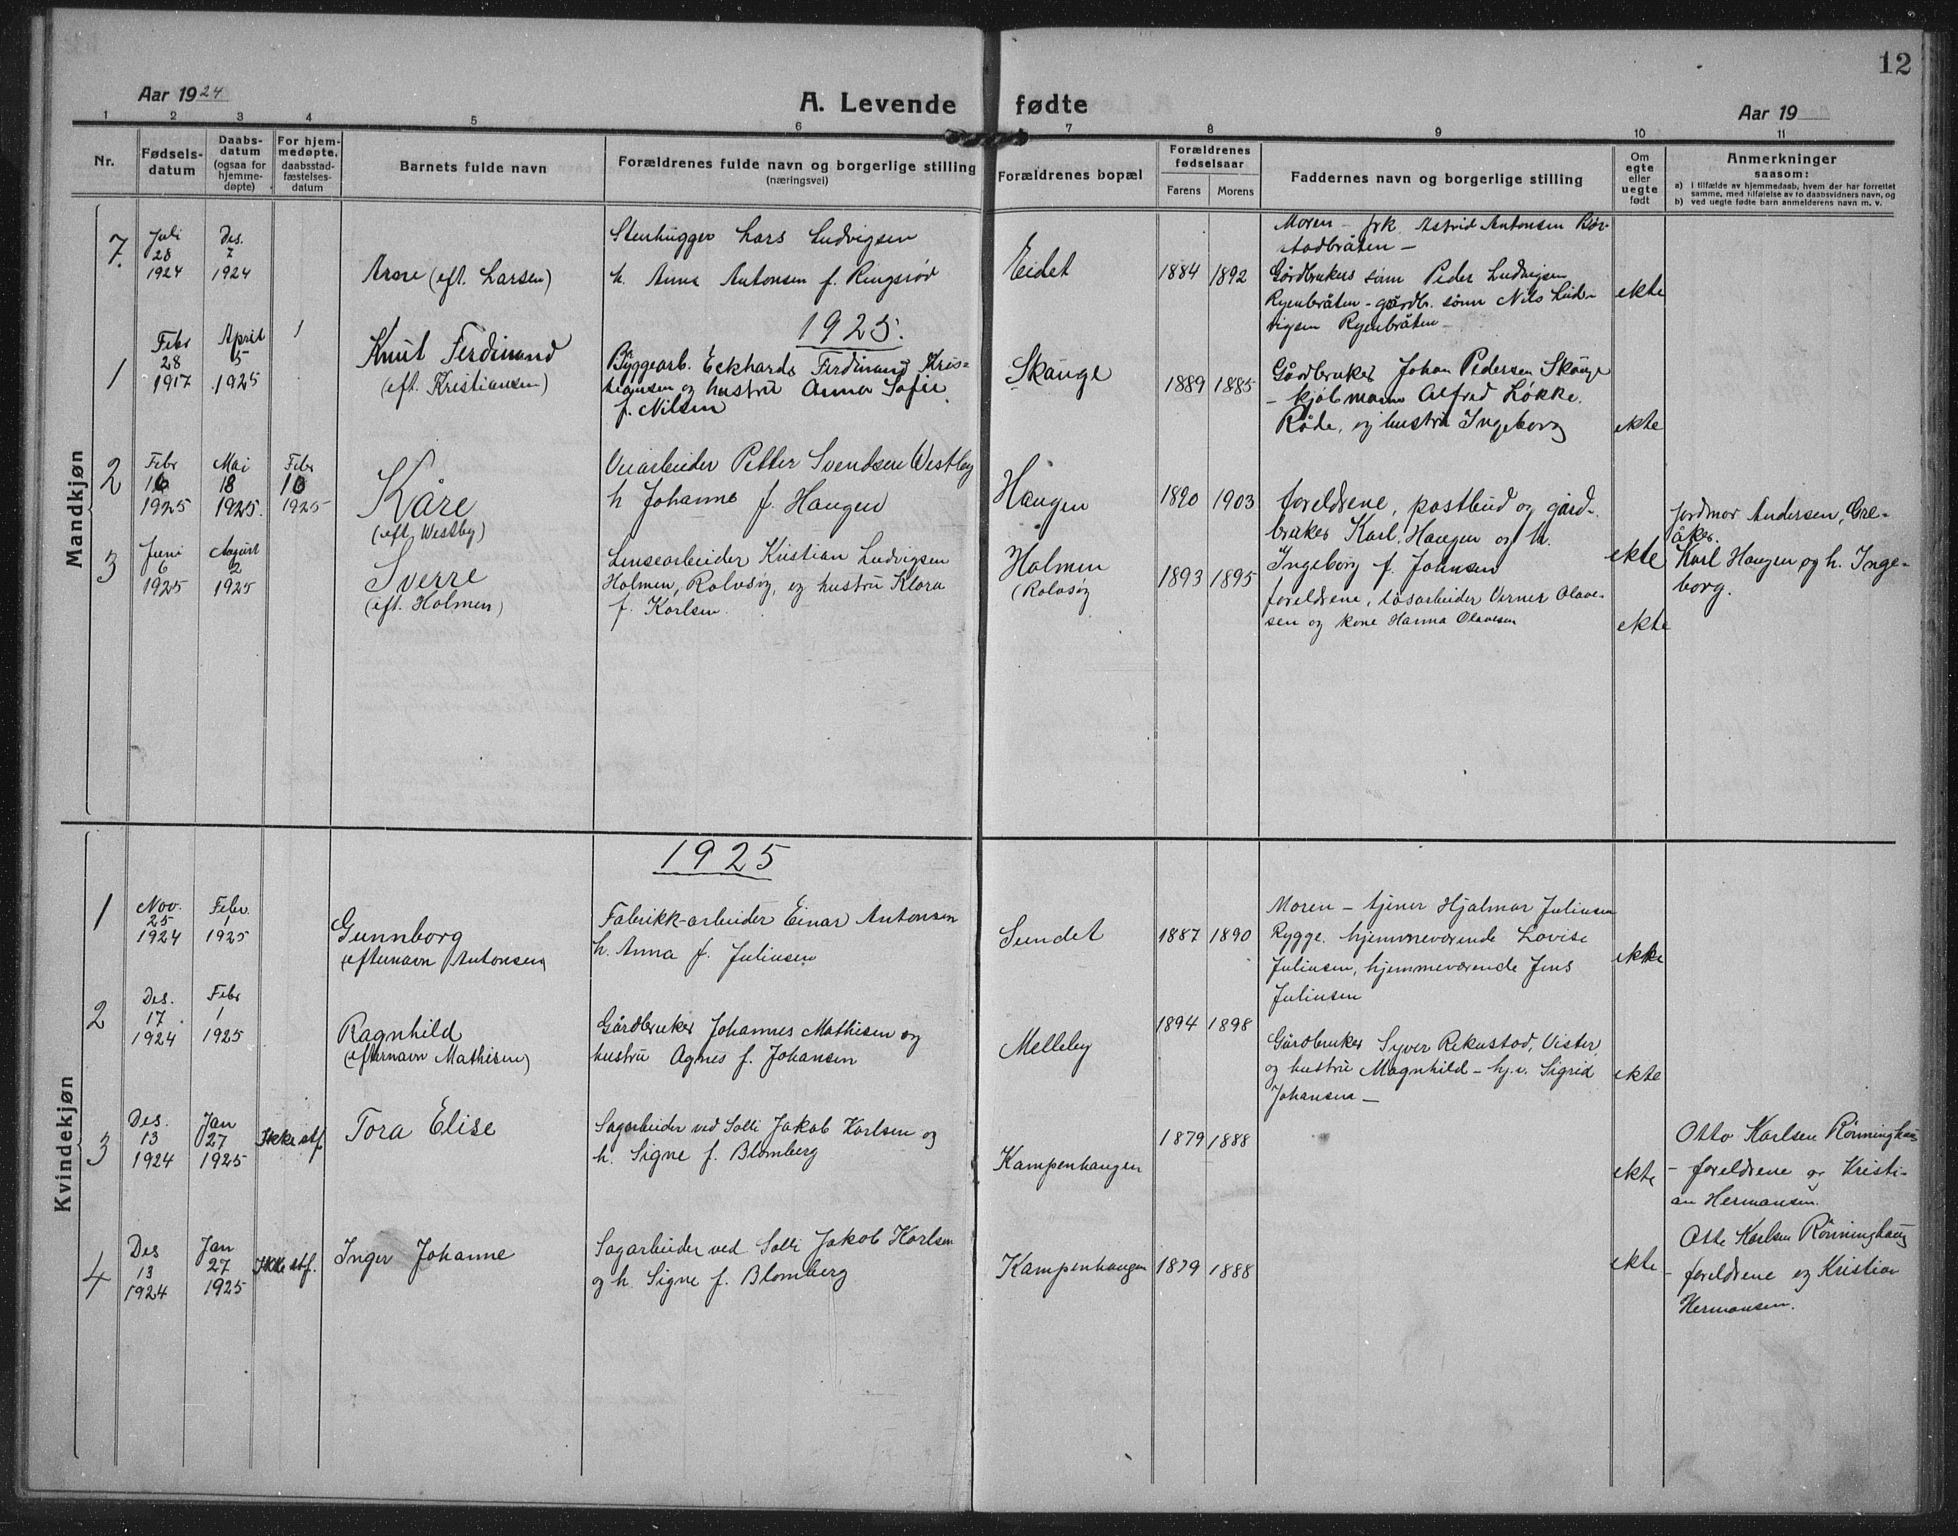 12
Aar 1924
A. Levende fødte
Aar 19
1 2 3 4 5 6 7 8 9 10 11
Nr.
Fødsels-
datum
Daabs-
datum
(ogsaa for
hjemme-
døpte)
For hjem-
medøpte.
daabsstad-
fæstelses-
datum
Barnets fulde navn
Forældrenes fulde navn og borgerlige stilling
(næringsvei)
Forældrenes bopæl
Forældrenes
fødselsaar
Farens Morens
Faddernes navn og borgerlige stilling
Om
egte
eller
uegte
født
Anmerkninger
saasom:
a) i tilfælde av hjemmedaab, hvem der har forrettet
samme, med tilføielse av to daabsvidners navn, og
b) ved uegte fødte barn anmelderens navn m. v.
Mandkjøn
7.
Juli
28
1924
Des.
7
1924
Arne (eft. Larsen)
Stenhugger Lars Ludvigsen
h. Anna Antonsen f. Ringsrød
Eidet
1884 1892
Moren – frk. Astrid Antonsen Rør-
stadbråten –
Gårdbrukers sønn Peder Ludvigsen
Ryenbråten – gårdbr. sønn Nils Lud-
vigsen Ryenbråten –
ekte
1925.
1
Febr
28
1917
April
5
1925
1
Knut Ferdinand
(eft. Kristiansen)
Byggearb. Eckhardt Ferdinand Kris-
tiansen og hustru Anna Sofie
f. Nilsen
Skauge
1889 1885
Gårdbruker Johan Pedersen Skauge
– kjøbmann Alfred Løkke.
Råde, og hustru Ingeborg
ekte
2
Febr
16
1925
Mai
18
1925.
Febr
16
1925
Kåre
(eft. Westby)
Veiarbeider Petter Svendsen Westby
h Johanne f. Haugen
Haugen
1890 1903
foreldrene, postbud og gård-
bruker Karl Haugen og h.
Ingeborg f. Johnsen
ekte
Jordmor Andersen, Gre-
åker.
Karl Haugen og h. Inge-
borg.
3
Juni
6
1925
August
2
1925
Sverre
(eft. Holmen)
Lensearbeider Kristian Ludvigsen
Holmen, Rolvsøy, og hustru Klara
f. Karlsen.
Holmen
(Rolvsøy
1893 1895
foreldrene, løsarbeider Verner Olave-
sen og kone Hanna Olavesen
ekte
Kvindekjøn
1925
1
Nov.
25
1924
Febr.
1
1925
Gunnborg
(efternavn Antonsen)
Fabrikk-arbeider Einar Antonsen
h. Anna f. Juliusen
Sundet
1887 1890
Moren – tjener Hjalmar Juliusen
Rygge. hjemmeværende Lovise
Juliusen, hjemmeværende Jens
Juliusen
ekte
2
Des.
17
1924
Febr
1
1925
Ragnhild
(efternavn Mathisen)
Gårdbruker Johannes Mathisen og
hustru Agnes f. Johansen
Melleby
1894 1898
Gårdbruker Syver Rekustad, Vister,
og hustru Magnhild – hj.v. Sigrid
Johansen –
ekte
3
Des.
13
1924
Jan
27
1925
Ikke stf.
Tora Elise
Sagarbeider ved Solli Jakob Karlsen og
h. Signe f. Blomberg
Kampenhaugen
1879 1888
ekte
Otto Karlsen Rønninghaug
– foreldrene og Kristi-
an Hermansen.
4
Des
13
1924
Jan
27
1925
Ikke stf.
Inger Johanne
Sagarbeider ved Solli Jakob Karlsen
og h. Signe f. Blomberg
Kampenhaugen
1879 1888
ekte
Otto Karlsen Rønninghaug
– foreldrene og Kristian
Hermansen.